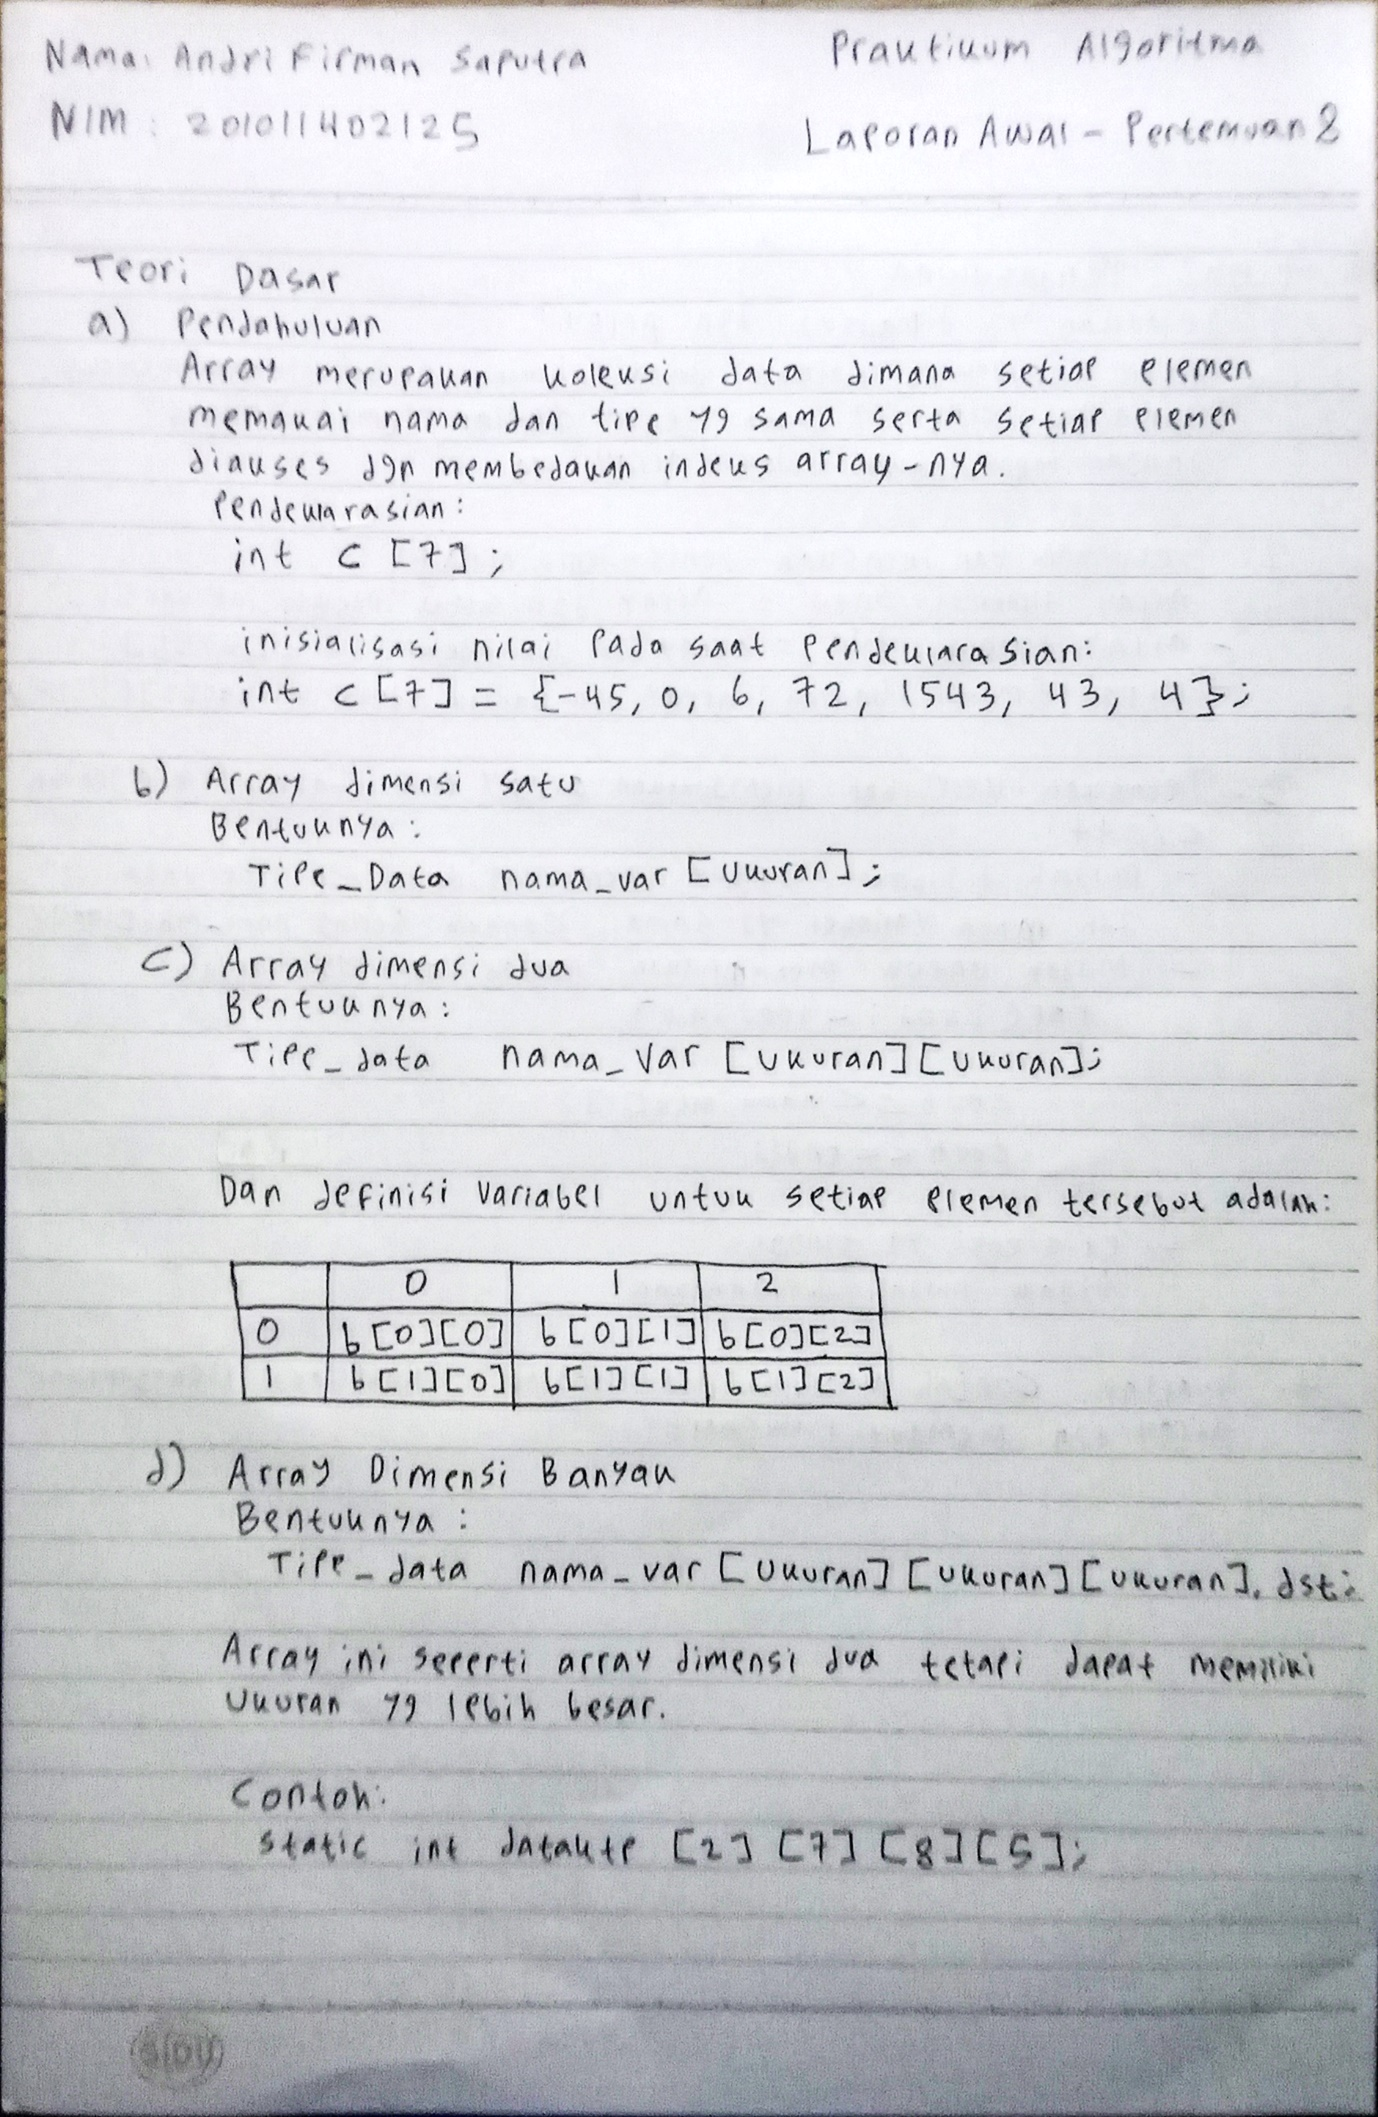 Nama: Andri Firman Saputra
Praktikum Algoritma
NIM : 201011402125
Laporan Awal - Pertemuan 8
Teori Dasar
a) Pendahuluan
Array merupakan koleksi data dimana setiap elemen
memakai nama dan tipe yg sama serta setiap elemen
diakses dgn membedakan indeks array-nya.
Pendeklarasian:
int C [7];
inisialisasi nilai pada saat pendeklarasian:
int C [7] = {-45, 0, 6, 72, 1543, 43, 4};
b) Array dimensi satu
Bentuknya:
Tipe_Data nama_var [Ukuran];
c) Array dimensi dua
Bentuknya:
Tipe_data nama_var [Ukuran] [Ukuran];
Dan definisi variabel untuk setiap elemen tersebut adalah:
0 1 2
0 b[0][0] b[0][1] b[0][2]
1 b[1][0] b[1][1] b[1][2]
d) Array Dimensi Banyak
Bentuknya :
Tipe_data nama_var [Ukuran] [Ukuran] [Ukuran]. dst;
Array ini seperti array dimensi dua tetapi dapat memiliki
Ukuran yg lebih besar.
Contoh:
static int [2] [7] [8] [5];